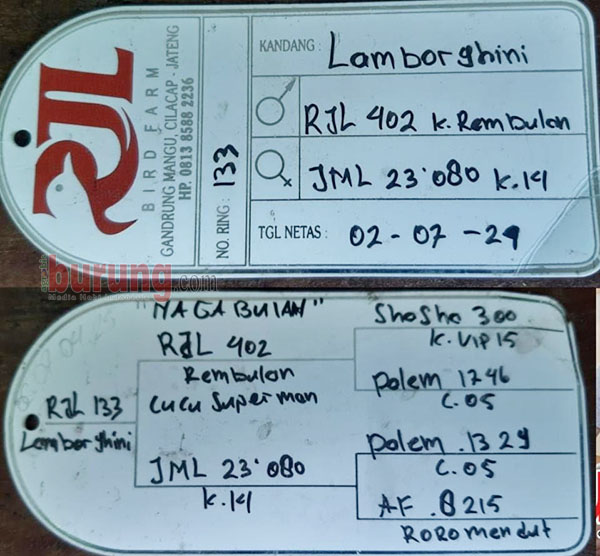 RJL
BIRD FARM
GANDRUNG MANGU, CILACAP - JATENG
HP. 0813 8588 2236
NO. RING : 133
KANDANG : Lamborghini
RJL 402 K. Rembulan
JML 23'080 K.14
TGL NETAS : 02-07-24
burung.com
"NAGA BULAN"
RJL 402
Rembulan
Cucu Superman
ShoSho 300
K. VIP 15
Polem 1246
C. 05
RJL 133
Lamborghini
JML 23'080
K.14
Polem .1329
C. 05
AF .B 215
ROROmendut